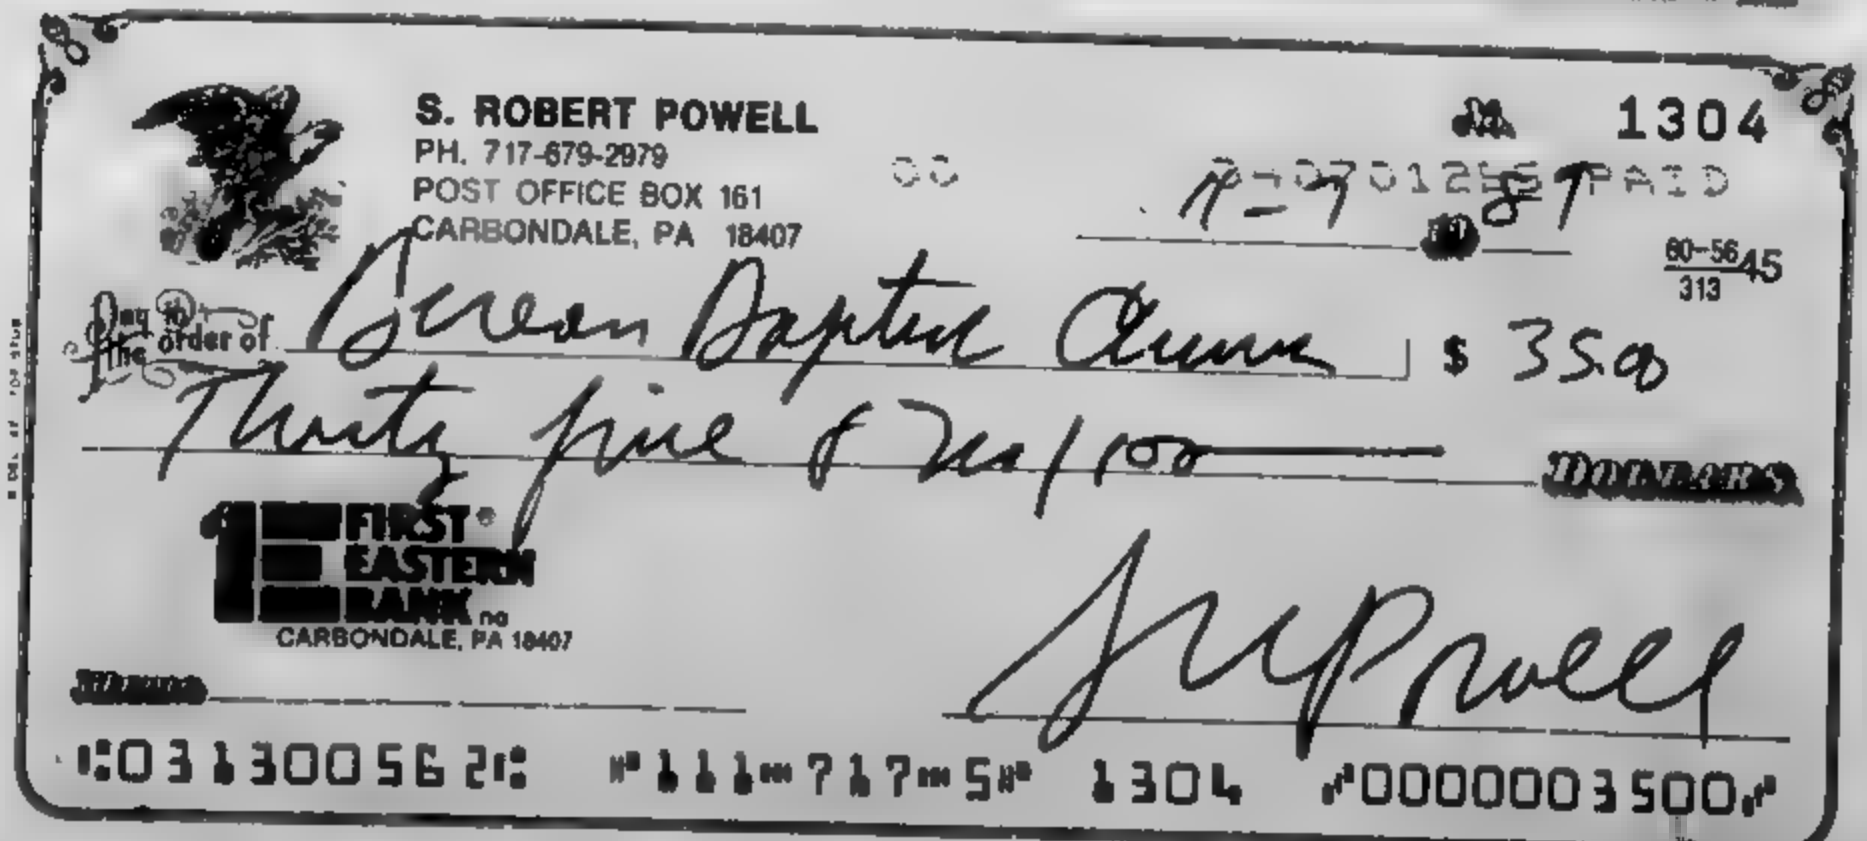 1304
S. ROBERT POWELL
PH. 717-679-2979
POST OFFICE BOX 161
CARBONDALE, PA 18407
PAID
87
60-56 45
313
Pay to the order of Berean Baptist Church $ 35.00
Thirty five & no/100 DOLLARS
FIRST
EASTERN
BANK na
CARBONDALE, PA 18407
S R Powell
⑆031300562⑆ ⑈111⑉717⑉5⑈ 1304 ⑈0000003500⑈